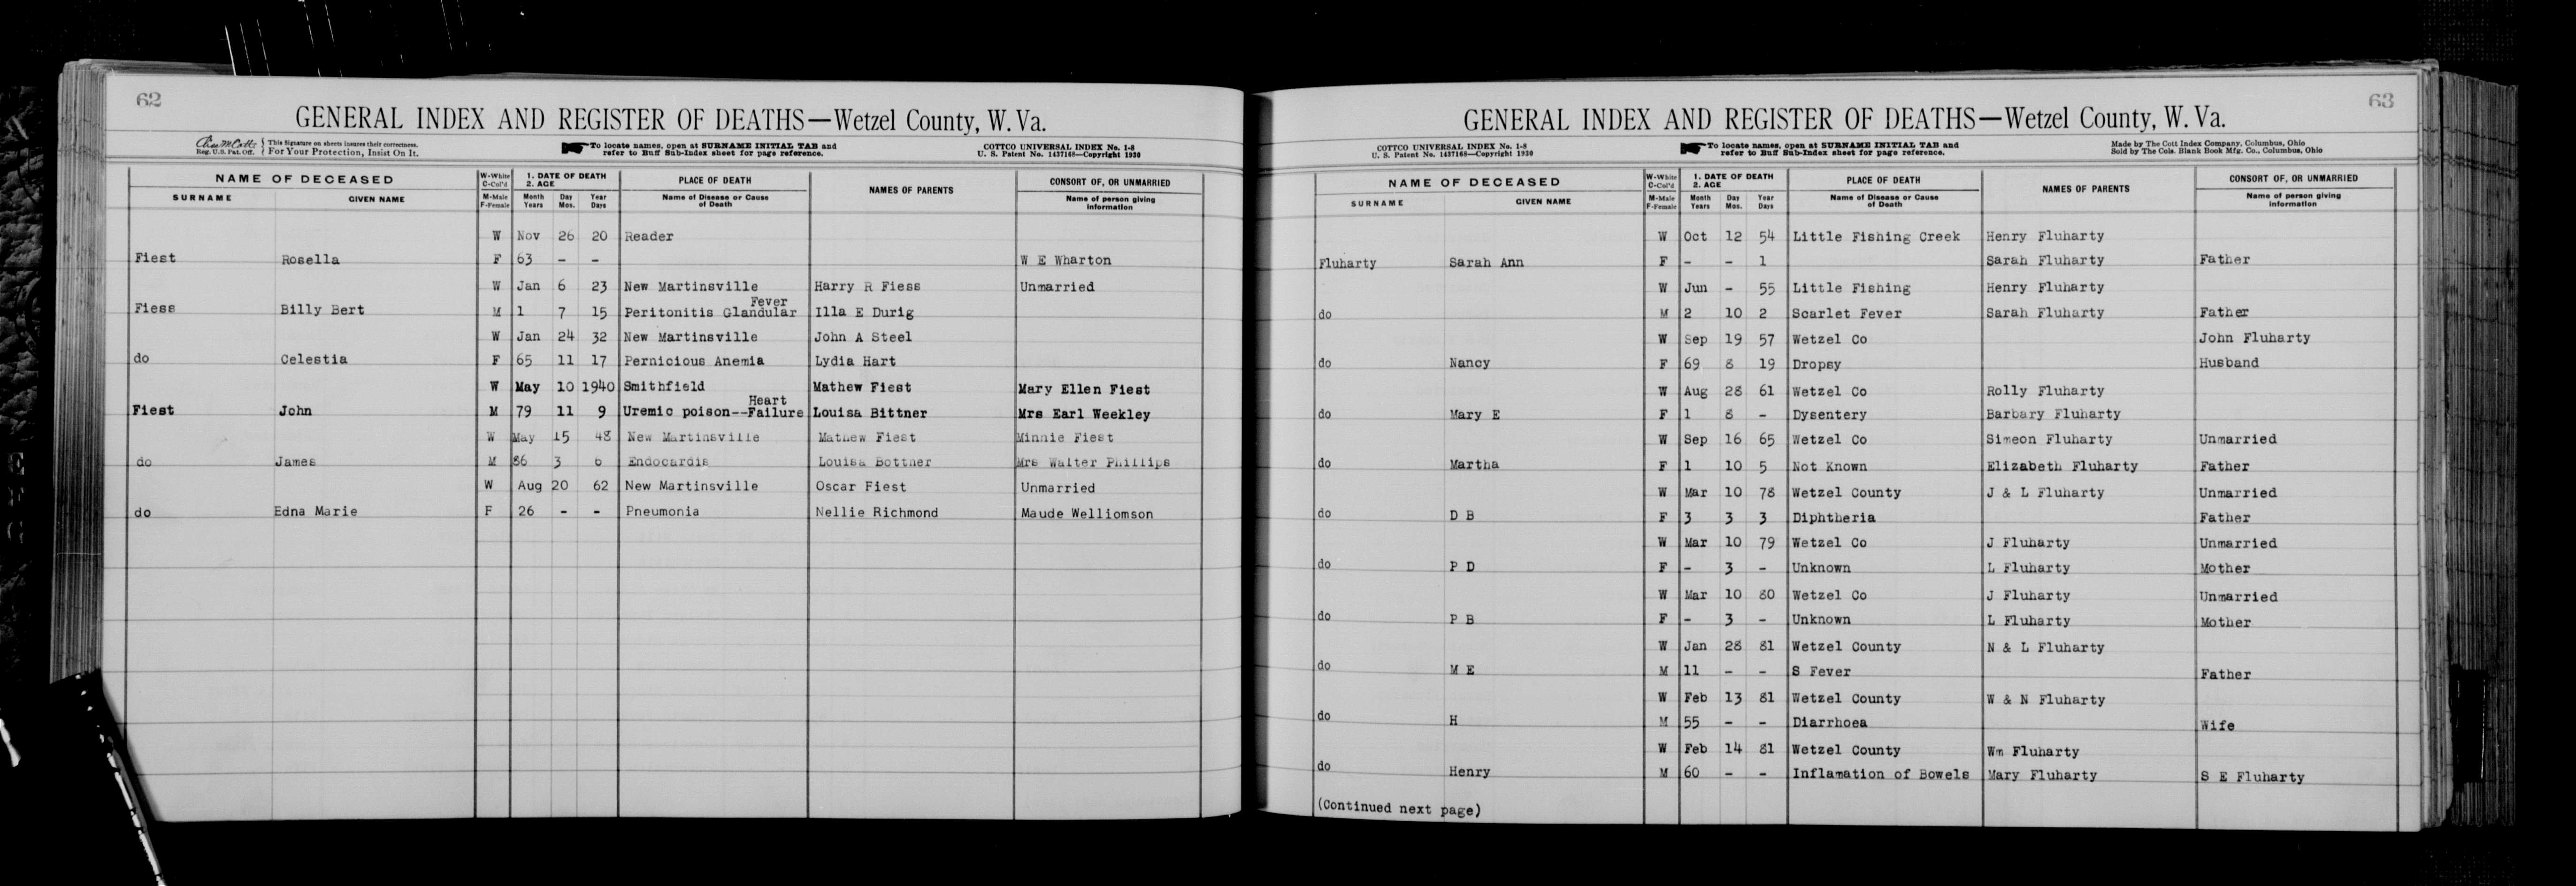 62
GENERAL INDEX AND REGISTER OF DEATHS—Wetzel County, W. Va.
Reg. U.S. Pat. Off. This Signature on sheets insures their correctness. For Your Protection, Insist On It.
To locate names, open at SURNAME INITIAL TAB and refer to Buff Sub-Index sheet for page reference.
COTTCO UNIVERSAL INDEX No. 1-8
U. S. Patent No. 1437168—Copyright 1930
NAME OF DECEASED W-White C-Col'd 1. DATE OF DEATH 2. AGE PLACE OF DEATH NAMES OF PARENTS CONSORT OF, OR UNMARRIED
SURNAME GIVEN NAME M-Male F-Female Month Years Day Mos. Year Days Name of Disease or Cause of Death Name of person giving information
W Nov 26 20 Reader
Fiest Rosella F 63 - - W E Wharton
W Jan 6 23 New Martinsville Harry R Fiess Unmarried
Fiess Billy Bert M 1 7 15 Peritonitis Glandular Fever Illa E Durig
W Jan 24 32 New Martinsville John A Steel
do Celestia F 65 11 17 Pernicious Anemia Lydia Hart
W May 10 1940 Smithfield Mathew Fiest Mary Ellen Fiest
Fiest John M 79 11 9 Uremic poison--Heart Failure Louisa Bittner Mrs Earl Weekley
W May 15 48 New Martinsville Mathew Fiest Minnie Fiest
do James M 86 3 6 Endocardis Louisa Bottner Mrs Walter Phillips
W Aug 20 62 New Martinsville Oscar Fiest Unmarried
do Edna Marie F 26 - - Pneumonia Nellie Richmond Maude Welliomson
63
GENERAL INDEX AND REGISTER OF DEATHS—Wetzel County, W. Va.
COTTCO UNIVERSAL INDEX No. 1-8
U. S. Patent No. 1437168—Copyright 1930
To locate names, open at SURNAME INITIAL TAB and refer to Buff Sub-Index sheet for page reference.
Made by The Cott Index Company, Columbus, Ohio
Sold by The Cols. Blank Book Mfg. Co., Columbus, Ohio
NAME OF DECEASED W-White C-Col'd 1. DATE OF DEATH 2. AGE PLACE OF DEATH NAMES OF PARENTS CONSORT OF, OR UNMARRIED
SURNAME GIVEN NAME M-Male F-Female Month Years Day Mos. Year Days Name of Disease or Cause of Death Name of person giving information
W Oct 12 54 Little Fishing Creek Henry Fluharty
Fluharty Sarah Ann F - - 1 Sarah Fluharty Father
W Jun - 55 Little Fishing Henry Fluharty
do M 2 10 2 Scarlet Fever Sarah Fluharty Father
W Sep 19 57 Wetzel Co John Fluharty
do Nancy F 69 8 19 Dropsy Husband
W Aug 28 61 Wetzel Co Rolly Fluharty
do Mary E F 1 8 - Dysentery Barbary Fluharty
W Sep 16 65 Wetzel Co Simeon Fluharty Unmarried
do Martha F 1 10 5 Not Known Elizabeth Fluharty Father
W Mar 10 78 Wetzel County J & L Fluharty Unmarried
do D B F 3 3 3 Diphtheria Father
W Mar 10 79 Wetzel Co J Fluharty Unmarried
do P D F - 3 - Unknown L Fluharty Mother
W Mar 10 80 Wetzel Co J Fluharty Unmarried
do P B F - 3 - Unknown L Fluharty Mother
W Jan 28 81 Wetzel County N & L Fluharty
do M E M 11 - - S Fever Father
W Feb 13 81 Wetzel County W & N Fluharty
do H M 55 - - Diarrhoea Wife
W Feb 14 81 Wetzel County Wm Fluharty
do Henry M 60 - - Inflamation of Bowels Mary Fluharty S E Fluharty
(Continued next page)